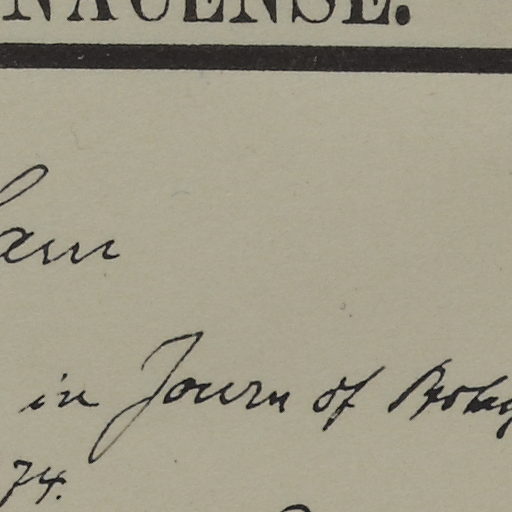 NAUENSE.
am
in Journ of Botany
74.